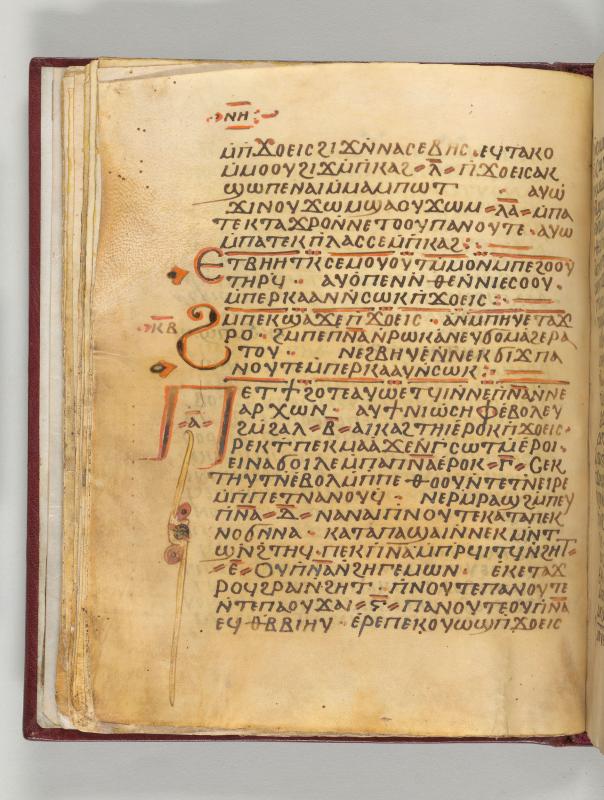 ⲛⲏ
ⲙⲡϫⲟⲉⲓⲥϩⲓϫⲛⲛⲁⲥⲉⲃⲏⲥ·ⲉϥⲧⲁⲕⲟ
ⲙⲙⲟⲟⲩϩⲓϫⲙⲡⲕⲁϩ ⲗ ⲡϫⲟⲉⲓⲥⲁⲕ
ϣⲱⲡⲉⲛⲁⲓⲙⲙⲁⲙⲡⲱⲧ · ⲁⲩⲱ
ϫⲓⲛⲟⲩϫⲱⲙϣⲁⲟⲩϫⲱⲙ ⲗⲁ ⲙⲡⲁ
ⲧⲉⲕⲧⲁϫⲣⲟⲛⲛⲉⲧⲟⲟⲩⲡⲁⲛⲟⲩⲧⲉ·ⲁⲩⲱ
ⲙⲡⲁⲧⲉⲕⲡⲗⲁⲥⲥⲉⲙⲡⲕⲁϩ:
ⲉⲧⲃⲏⲏⲧⲕⲥⲉⲙⲟⲩⲟⲩⲧⲙⲙⲟⲛⲙⲡⲉϩⲟⲟⲩ
ⲧⲏⲣϥ· ⲁⲩⲟⲡⲉⲛⲛ ⲑⲉⲛⲛⲓⲉⲥⲟⲟⲩ·
ⲙⲡⲉⲣⲕⲁⲁⲛⲛⲥⲱⲕⲡϫⲟⲉⲓⲥ:
ⲕⲃ
ϩⲙⲡⲉⲕϣⲁϫⲉⲡϫⲟⲉⲓⲥ·ⲁⲛⲙⲡⲏⲩⲉⲧⲁϫ
ⲣⲟ·ϩⲙⲡⲉⲡⲛⲁⲛⲣⲱⲕⲁⲛⲉⲩϭⲟⲙⲁϩⲉⲣⲁ
ⲧⲟⲩ· ⲛⲉϩⲃⲏⲩⲉⲛⲛⲉⲕϭⲓϫⲡⲁ
ⲛⲟⲩⲧⲉⲙⲡⲉⲣⲕⲁⲁⲩⲛⲥⲱⲕ:
ⲡⲉⲧϯϩⲟⲧⲉⲁⲩⲱⲉⲧϥⲓⲛⲛⲉⲡⲛⲁⲛⲛⲉ
ⲁⲣⲭⲱⲛ· ⲁⲩϯⲛⲓⲱⲥⲏⲫⲉⲃⲟⲗⲉⲩ
ⲁ
ϩⲙϩⲁⲗ ⲃ ⲁⲓⲕⲁϩⲧⲏⲓⲉⲣⲟⲕⲡϫⲟⲉⲓⲥ·
ⲣⲉⲕⲧⲡⲉⲕⲙⲁⲁϫⲉⲛⲅⲥⲱⲧⲙⲉⲣⲟⲓ·
ⲉⲓⲛⲁϭⲟⲓⲗⲉⲙⲡⲁⲡⲛⲁⲉⲣⲟⲕ ⲅ ⲥⲉⲕ
ⲧⲏⲩⲧⲛⲉⲃⲟⲗⲙⲡⲡⲉⲑⲟⲟⲩⲛⲧⲉⲧⲛⲉⲓⲣⲉ
ⲙⲡⲡⲉⲧⲛⲁⲛⲟⲩϥ· ⲛⲉⲣⲙⲣⲁϣϩⲙⲡⲉⲩ
ⲡⲛⲁ ⲇ ⲛⲁⲛⲁⲓⲡⲛⲟⲩⲧⲉⲕⲁⲧⲁⲡⲉⲕ
ⲛⲟϭⲛⲛⲁ·ⲕⲁⲧⲁⲡⲁϣⲁⲓⲛⲛⲉⲕⲙⲛⲧ
ϣⲛϩⲧⲏϥ·ⲡⲉⲕⲡⲛⲁⲙⲡⲣϥⲓⲧϥⲛϩⲏⲧ
ⲉ ⲟⲩⲡⲛⲁⲛϩⲏⲅⲉⲙⲱⲛ· ⲉⲕⲉⲧⲁϫ
ⲣⲟϥϩⲣⲁⲓⲛϩⲏⲧ·ⲡⲛⲟⲩⲧⲉⲡⲁⲛⲟⲩⲧⲉ
ⲛⲧⲉⲡⲁⲟⲩϫⲁⲓ ⲋ ⲡⲁⲛⲟⲩⲧⲉⲟⲩⲡⲛⲁ
ⲉϥⲑⲃⲃⲓⲏⲩ·ⲉⲣⲉⲡⲉⲕⲟⲩⲱϣⲡϫⲟⲉⲓⲥ